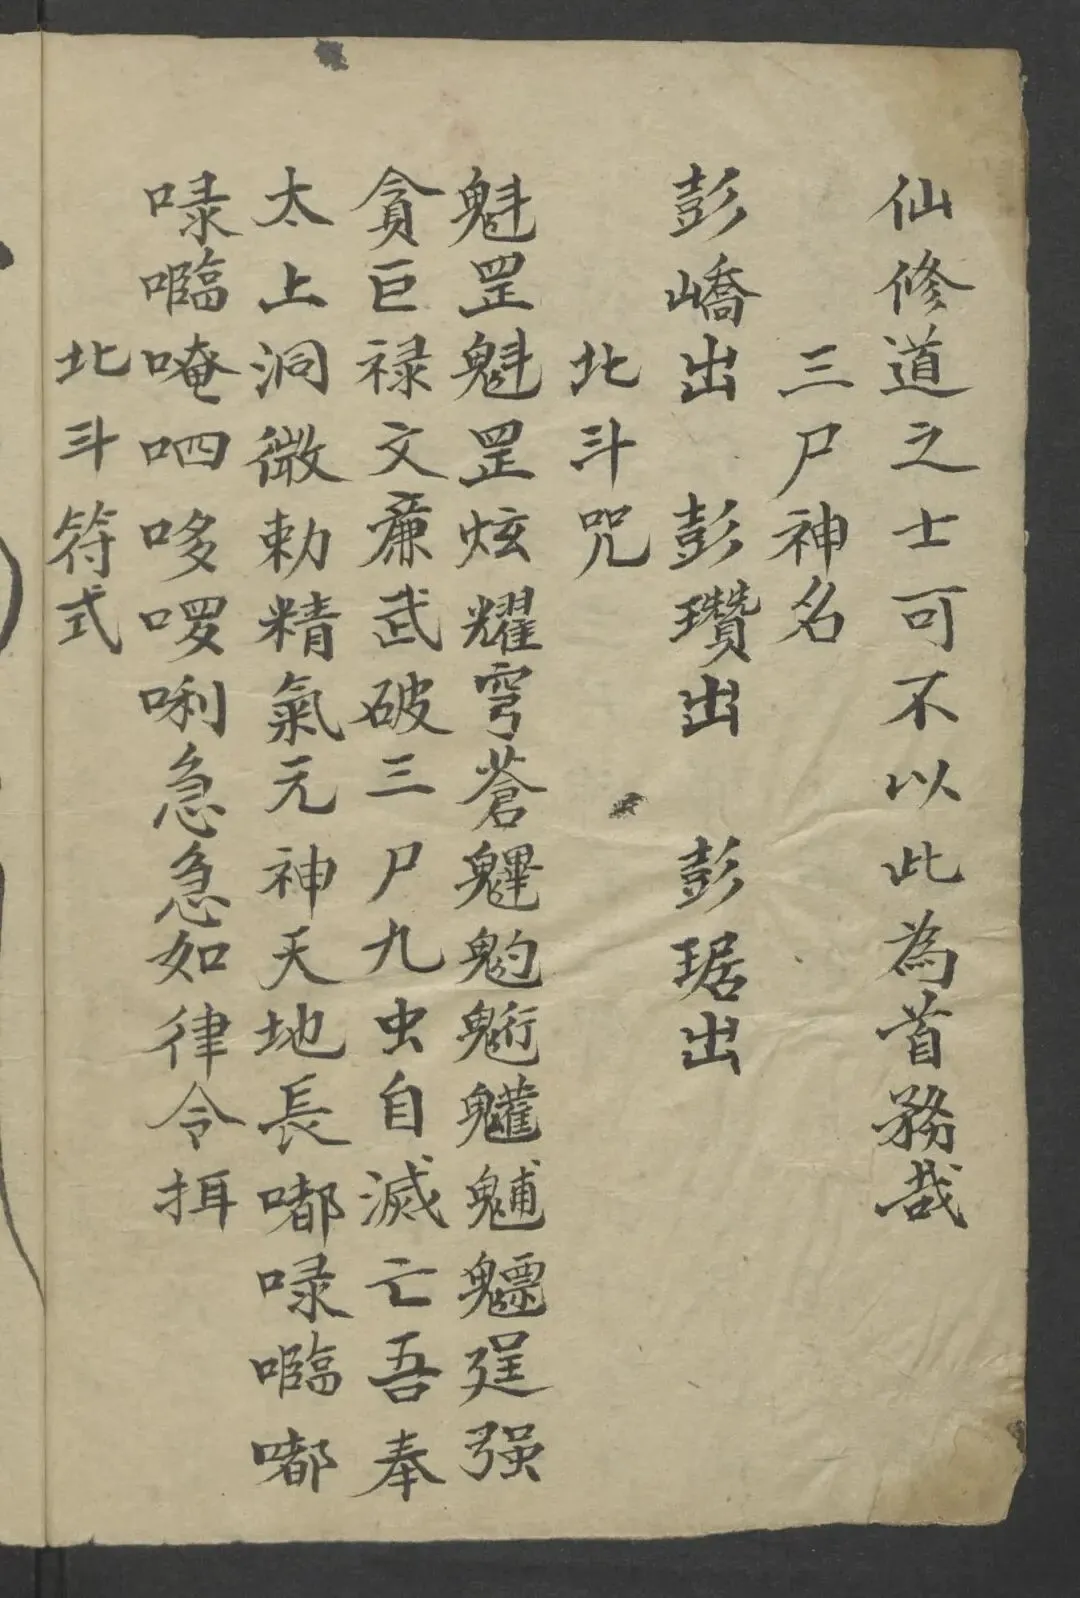 仙修道之士可不以此為首務哉
三尸神名
彭嶠出 彭瓚出 彭琚出
北斗咒
魁罡魁罡炫耀穹蒼魓魡䰢䰭䰳魒逞强
貪巨禄文廉武破三尸九虫自滅亡吾奉
太上洞微勅精氣元神天地長嘟㖨𡄽嘟
㖨𡄽唵呬哆啰唎急急如律令揖
北斗符式